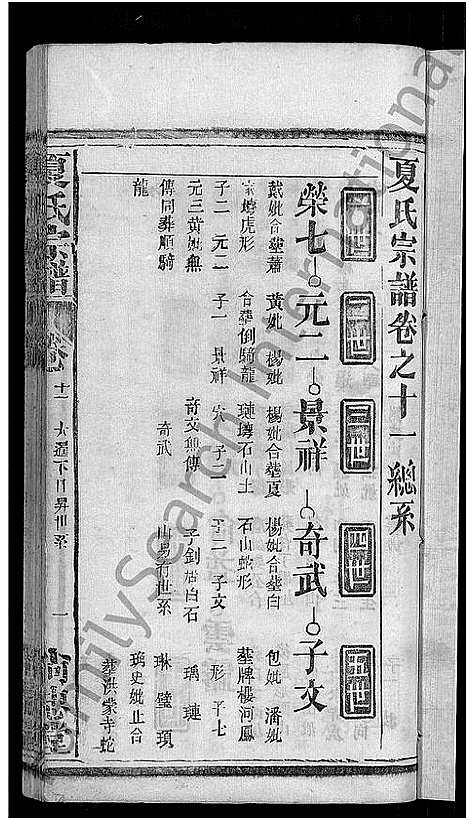 夏氏宗譜卷之十一 總系
一世 二世 三世 四世 五世
榮七 元二 景祥 奇武 子文
戴妣合塋蕭 黃妣 楊妣 楊妣合塋夏 楊妣合塋白 包妣 潘妣
家塘虎形 合葬倒騎龍 璉塼石山土 石山蛇形 塋牌樓河鳳
子二 元二 子一 景祥 穴 子二 子二 子文 形 子七
元三黃妣無 奇文無傳 子釗居白石 瑀 璉
傳同葬順騎 奇武 山易有世系 琳 璧 頊
龍 璃史妣止合
葬洪蒙寺蛇
夏氏宗譜
卷
十一
一
FamilySearch International